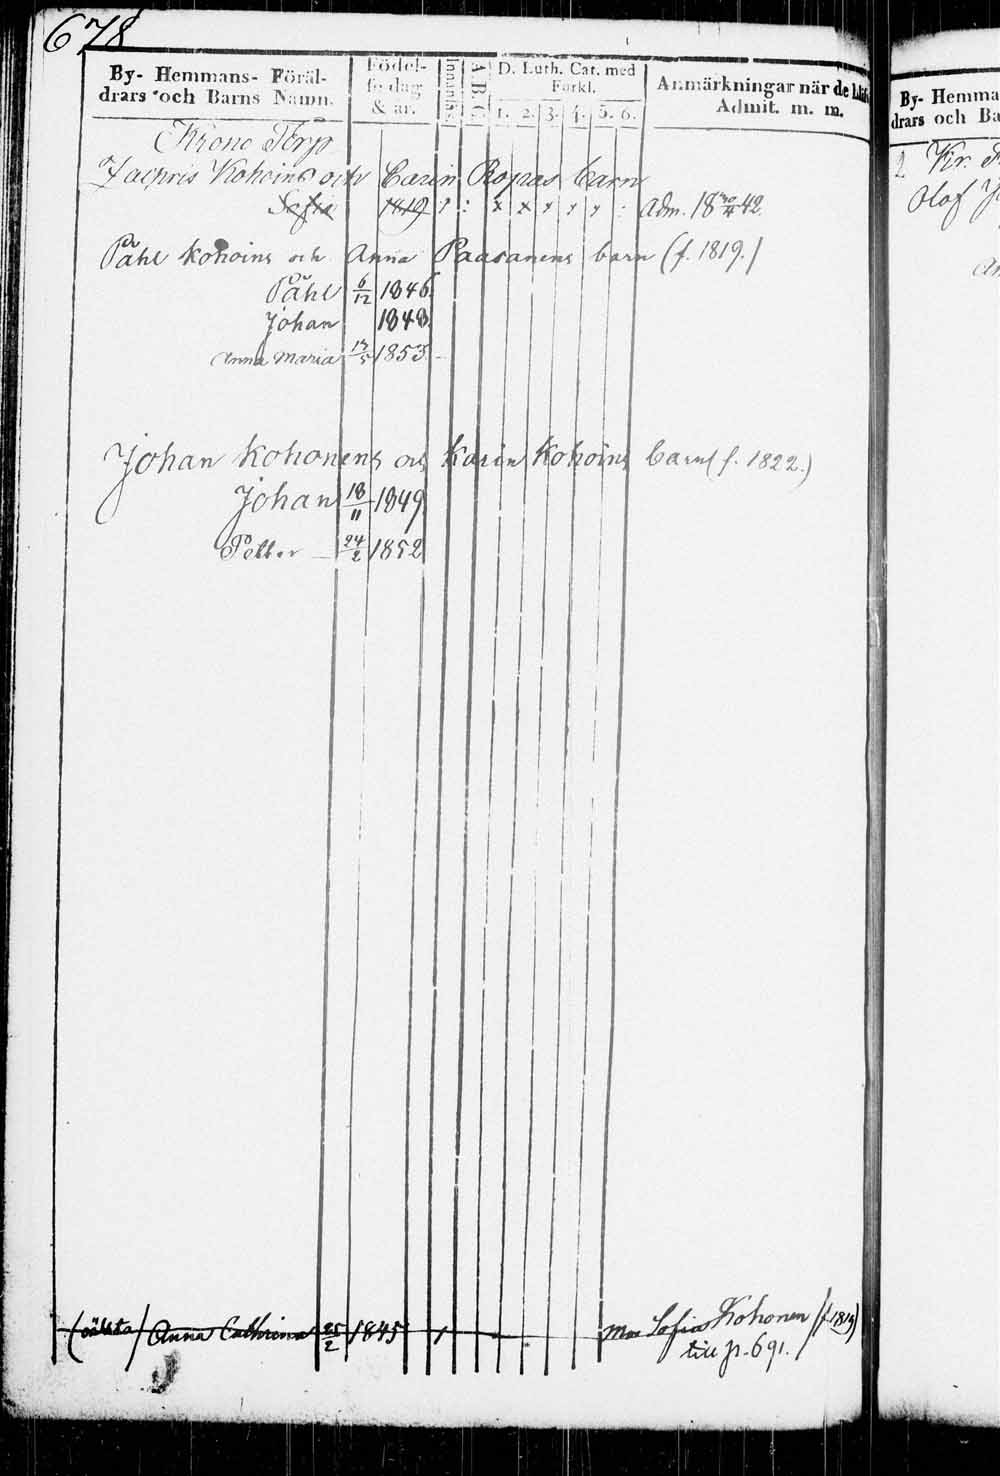 678
By- Hemmans- Föräl-
drars och Barns Namn.
Födel-
sedag
& år.
Innanläs
A. B. C.
D. Luth. Cat. med
Förkl.
1. 2. 3. 4. 5. 6.
Anmärkningar när de
Admit. m. m.
Krono Torp
Zachris Kohoins och Carin Ropas barn
Sofia 1819 Adm. 18 42.
Påhl Kohoins och Anna Paasanens barn (f. 1819.)
Påhl 6/12 1846.
Johan 1848.
Anna Maria 1853.
Johan Kohonens och Karin Kohoins barn (f. 1822.)
Johan 18/11 1849
Petter 24/2 1852
Anna Cathrina 25/2 1845 Sofia Kohonen (f. 1819)
till p. 691.
By- Hemma
drars och Ba
2 Kr.
Olof